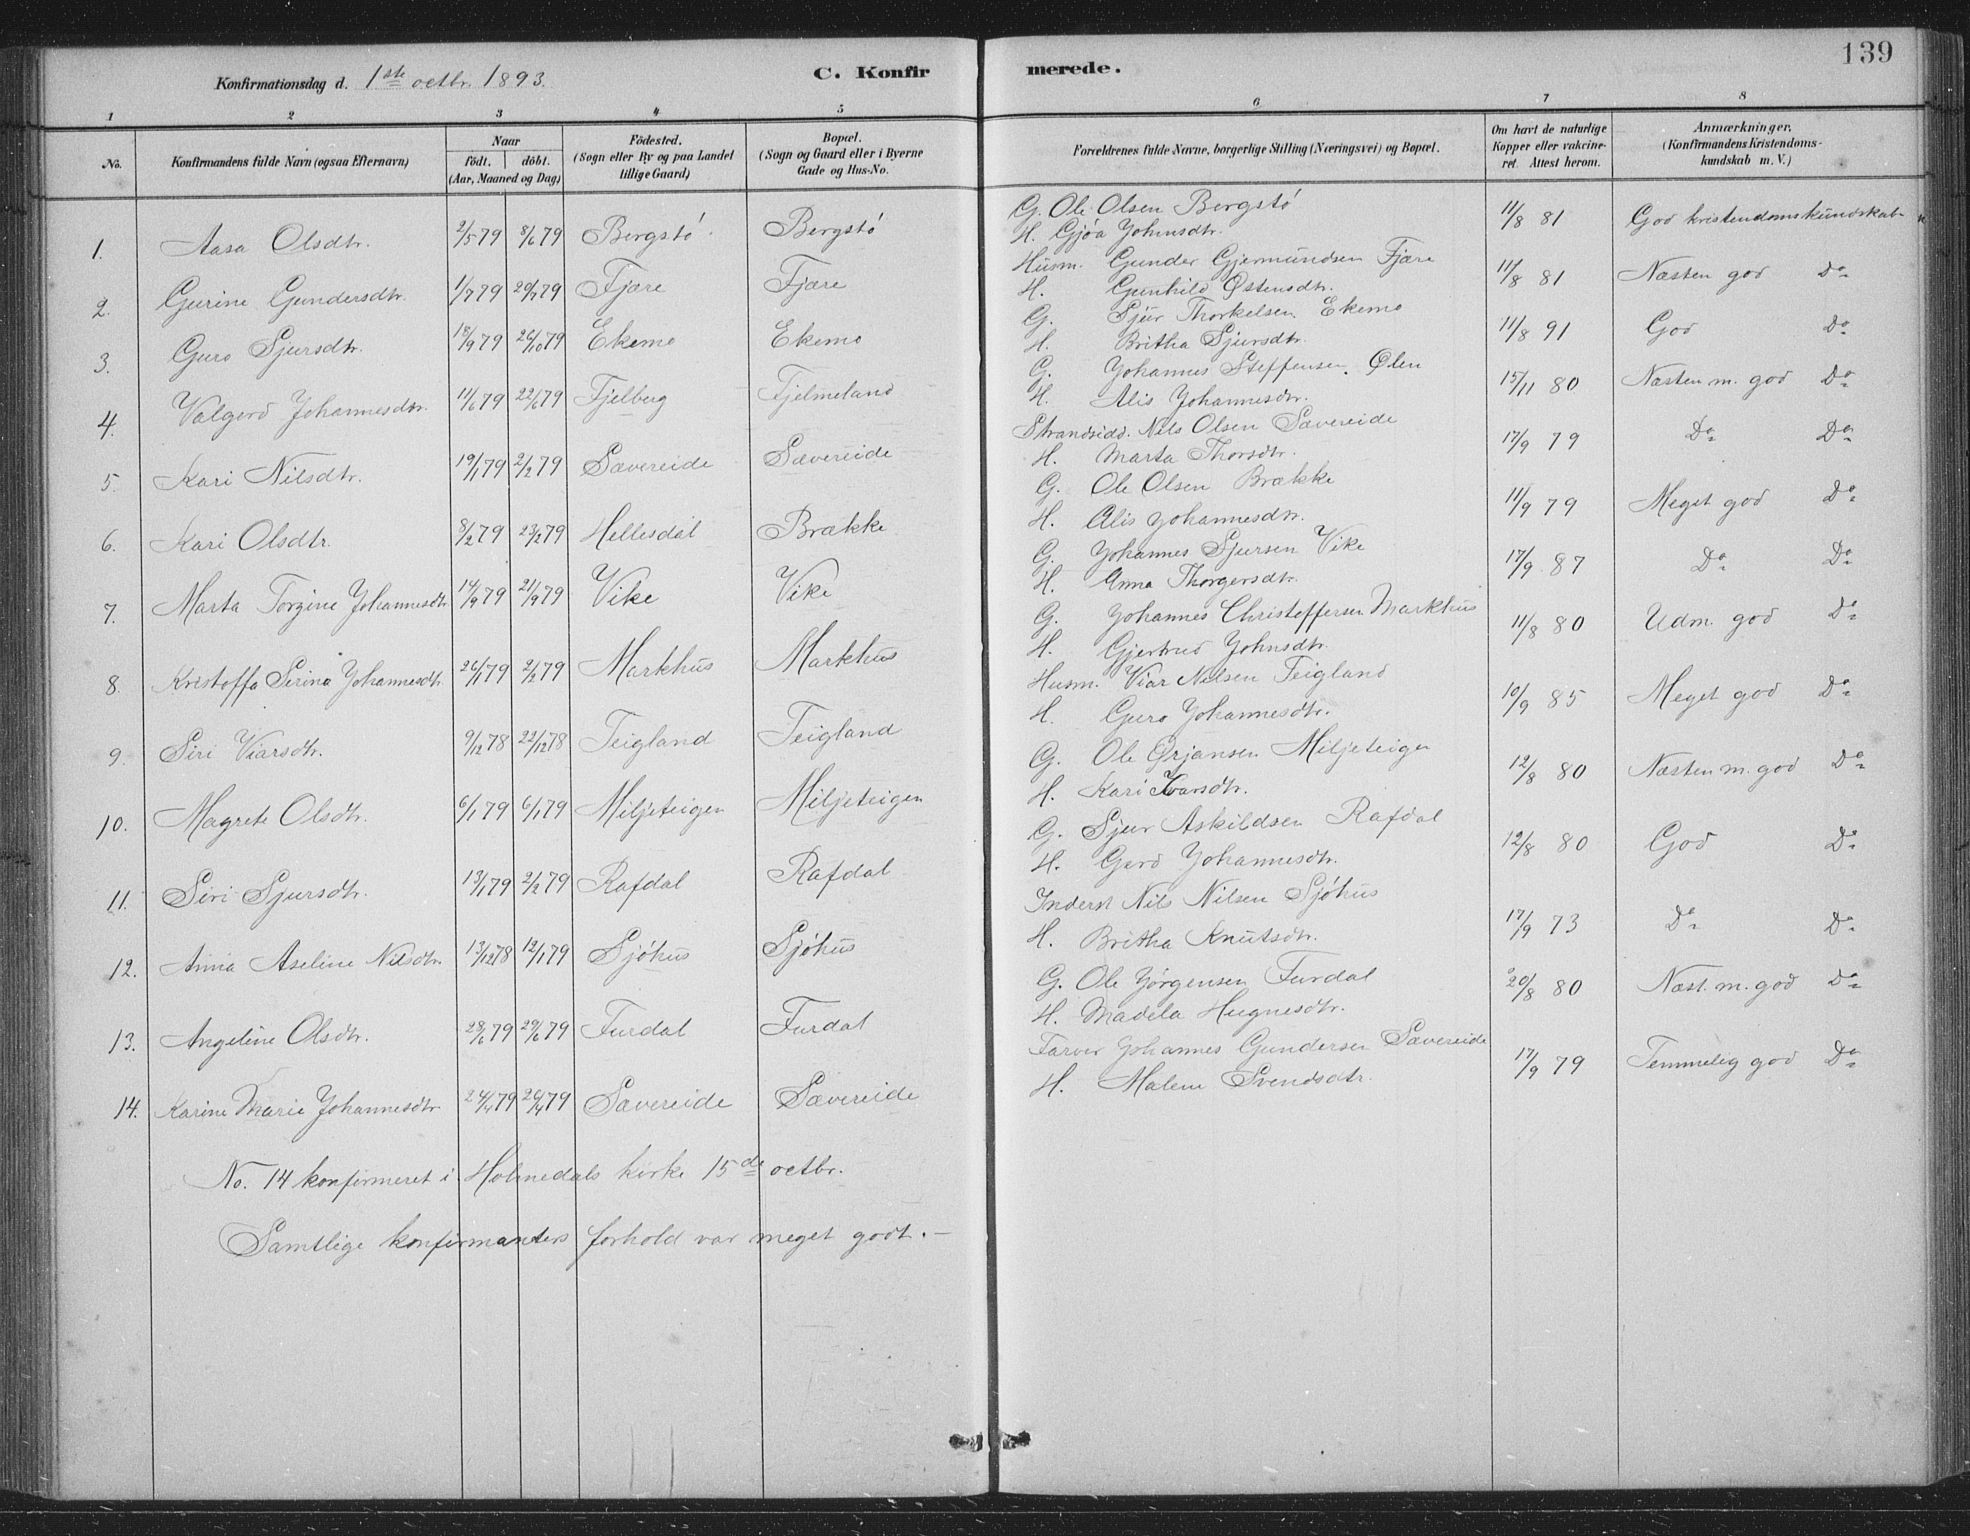 139
Konfirmationsdag d. 1ste octbr. 1893.
C. Konfirmerede.
1 2 3 4 5 6 7 8
No. Konfirmandens fulde Navn (ogsaa Efternavn) Naar født. døbt. (Aar, Maaned og Dag) Fødested. (Sogn eller By og paa Landet tillige Gaard) Bopæl. (Sogn og Gaard eller i Byerne Gade og Hus-No. Forældrenes fulde Navne, borgerlige Stilling (Næringsvei) og Bopæl. Om havt de naturlige Kopper eller vakcineret. Attest herom. Anmærkninger. (Konfirmandens Kristendomskundskab m. V.)
1. Aasa Olsdtr. 2/5 79 8/6 79 Bergstø Bergstø G. Ole Olsen Bergstø 11/8 81 God kristendomskundskab
H. Gjøa Johnsdtr.
2. Gurine Gundersdtr. 1/7 79 20/7 79 Fjære Fjære Husm. Gunder Gjermundsen Fjære 11/8 81 Næsten god Do
H. Gunhild Østensdtr.
3. Guro Sjursdtr. 18/9 79 26/10 79 Ekemo Ekemo G. Sjur Thorkelsen Ekemo 11/8 91 God Do
H. Britha Sjursdtr.
4. Valgerd Johannesdtr. 11/6 79 22/6 79 Fjelberg Fjelmeland G. Johannes Steffensen Ølen 15/11 80 Næsten m. god Do
H. Alis Johannesdtr.
5. Kari Nilsdtr. 19/1 79 2/2 79 Sævereide Sævereide Strandsidd. Nils Olsen Sævereide 17/9 79 Do Do
H. Marta Thorsdtr.
6. Kari Olsdtr. 8/2 79 23/2 79 Hellesdal Brække G. Ole Olsen Brække 11/9 79 Meget god Do
H. Alis Johannesdtr.
7. Marta Torgine Johannesdtr. 14/9 79 21/9 79 Vike Vike G. Johannes Sjursen Vike 17/9 87 Do Do
H. Anna Thorgersdtr.
8. Kristoffa Serina Johannesdtr. 26/1 79 2/2 79 Markhus Markhus G. Johannes Christoffersen Markhus 11/8 80 Udm. god Do
H. Gjertrud Johnsdtr.
9. Siri Viarsdtr. 9/12 78 22/12 78 Teigland Teigland Husm. Viar Nilsen Teigland 10/9 85 Meget god Do
H. Guro Johannesdtr.
10. Magrete Olsdtr. 6/1 79 6/1 79 Miljeteigen Miljeteigen G. Ole Ørjansen Miljeteigen 12/8 80 Næsten m. god Do
H. Kari Ivarsdtr.
11. Siri Sjursdtr. 13/1 79 2/2 79 Rafdal Rafdal G. Sjur Askildsen Rafdal 12/8 80 God Do
H. Gerd Johannesdtr.
12. Anna Aseline Nilsdtr. 13/12 78 12/1 79 Sjøhus Sjøhus Inderst Nils Nilsen Sjøhus 17/9 73 Do Do
H. Britha Knutsdtr.
13. Angeline Olsdtr. 28/6 79 29/6 79 Furdal Furdal G. Ole Jørgensen Furdal 20/8 80 Næst. m. god Do
H. Madela Hugnesdtr.
14. Karine Marie Johannesdtr. 24/4 79 26/4 79 Sævereide Sævereide Farver Johannes Gundersen Sævereide 17/9 79 Temmelig god Do
H. Malene Svendsdtr.
No. 14 konfirmeret i Holmedals kirke 15de octbr.
Samtlige konfirmanters forhold var meget godt.